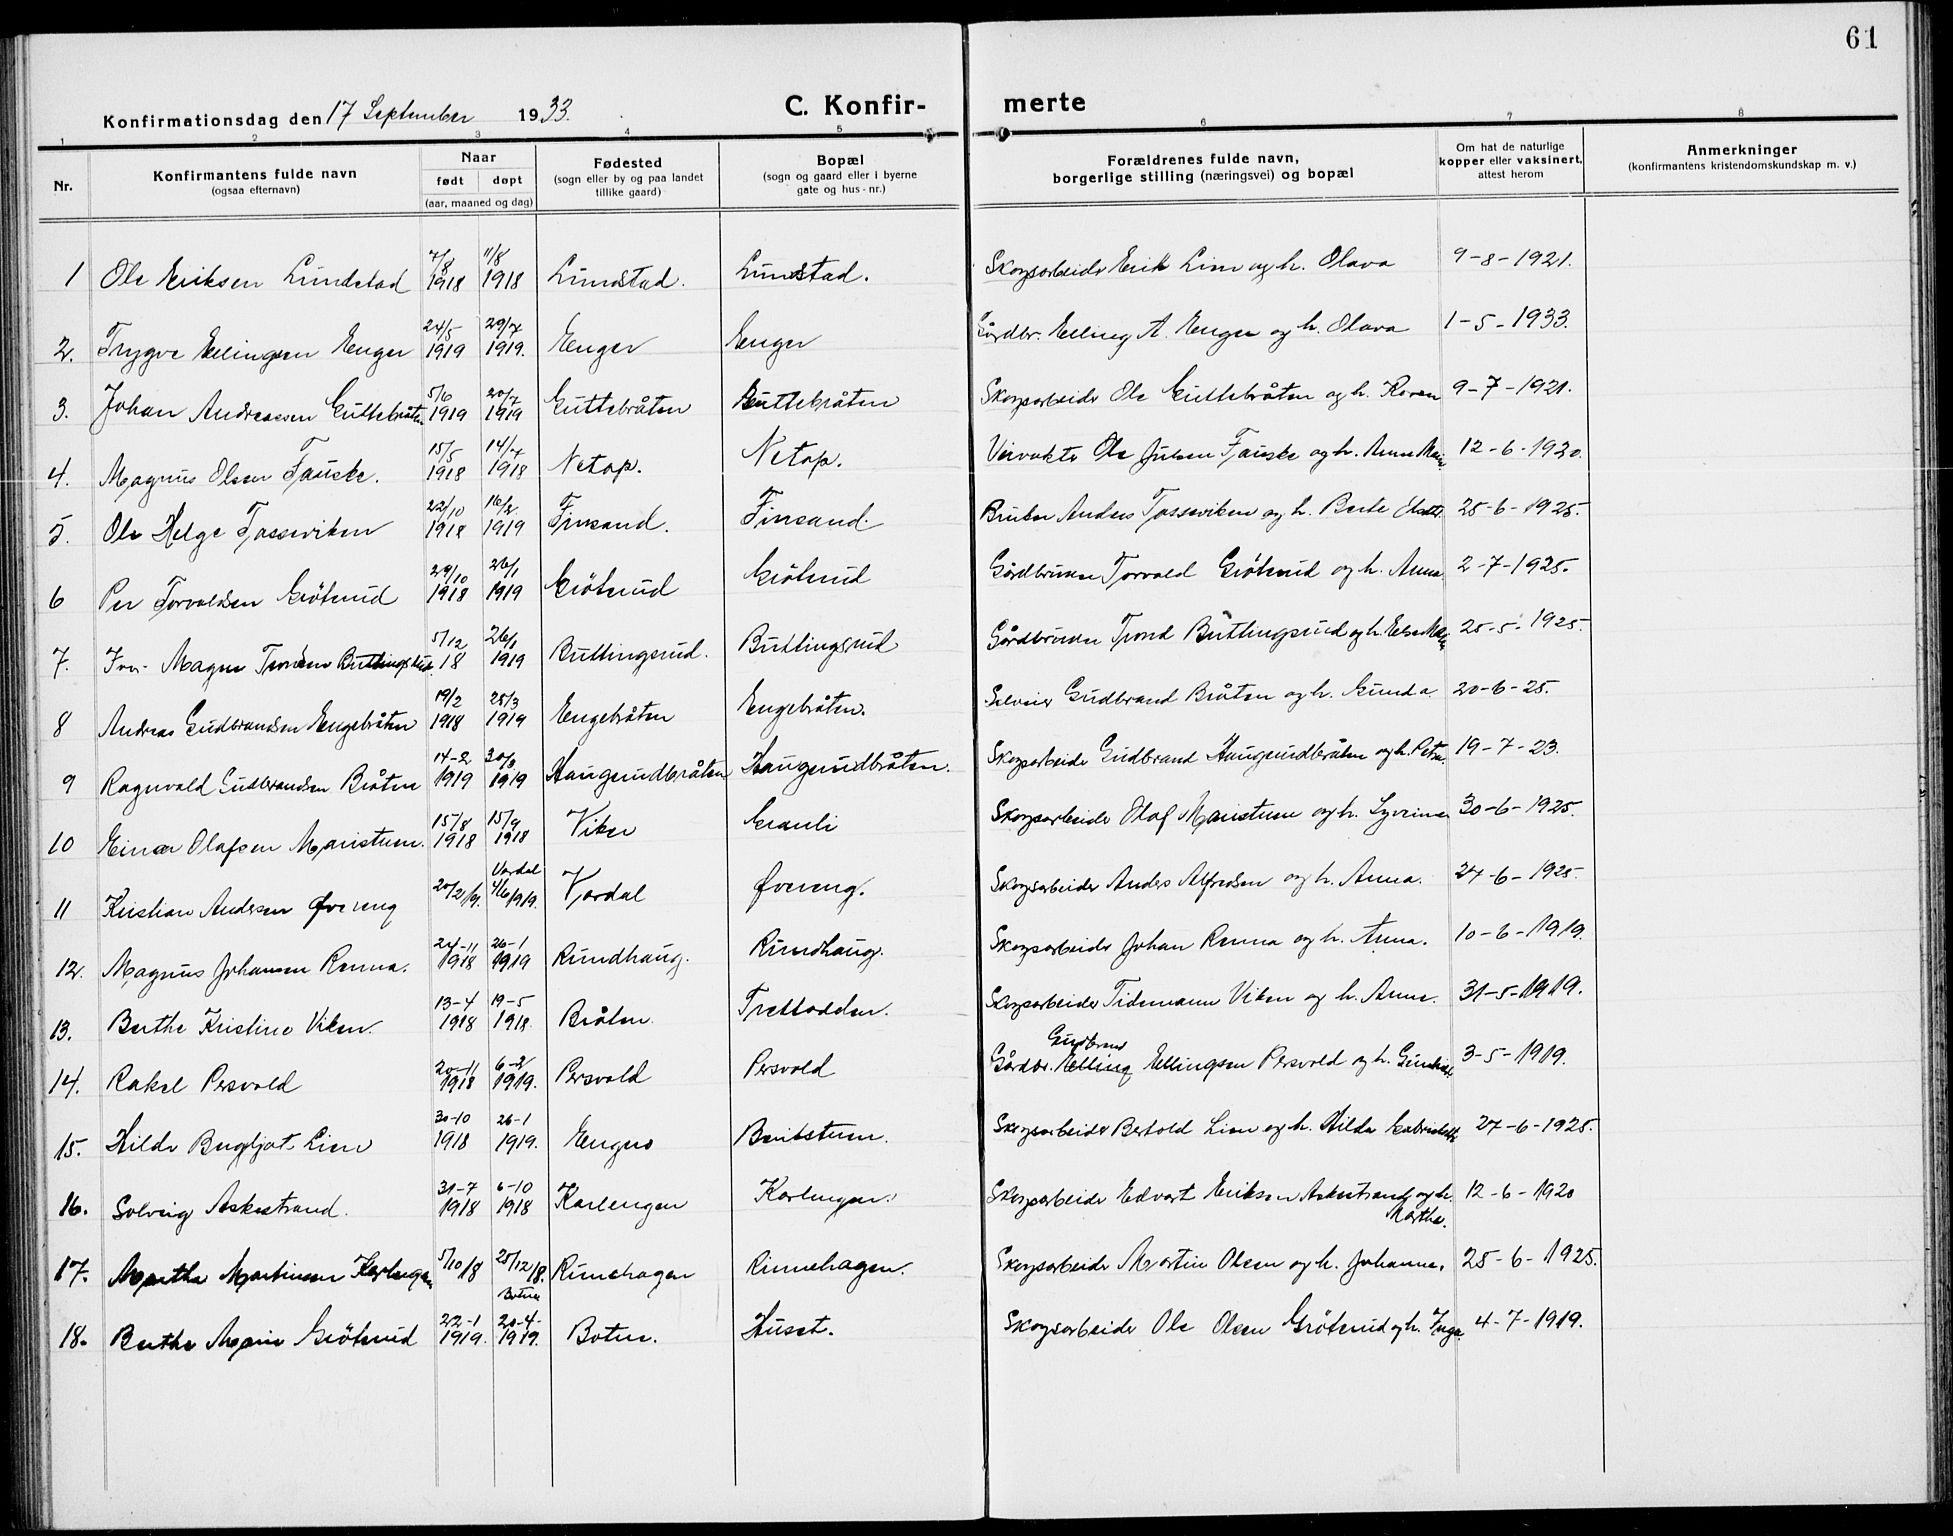 61
Konfirmationsdag den 17 September 1933.
C. Konfir- merte
1 2 3 4 5 6 7 8
Nr.
Konfirmantens fulde navn
(ogsaa efternavn)
Naar
født døpt
(aar, maaned og dag)
Fødested
(sogn eller by og paa landet
tillike gaard)
Bopæl
(sogn og gaard eller i byerne
gate og hus-nr.)
Forældrenes fulde navn,
borgerlige stilling (næringsvei) og bopæl
Om hat de naturlige
kopper eller vaksinert,
attest herom
Anmerkninger
(konfirmantens kristendomskundskap m. v.)
1 Ole Eriksen Lundstad 7/8 1918 11/8 1918 Lundstad. Lundstad. Skogsarbeider Erik Lien og h. Olava 9-8-1921.
2. Trygve Ellingsen Enger 24/5 1919 29/7 1919. Enger Enger Gårdbr. Elling A. Enger og h. Olava 1-5-1933.
3. Johan Andreassen Guttebråten 5/6 1919 20/7 1919 Guttebråten Guttebråten Skogsarbeider Ole Guttebråten og h. Karen 9-7-1921.
4. Magnus Olsen Fauske. 15/5 1918 14/7 1918 Netop. Netop. Veivokter Ole Julsen Fauske og h. Anne Marie 12-6-1920.
5. Ole Helge Tosseviken 22/10 1918 16/2 1919 Finsand. Finsand. Bruker Anders Tosseviken og h. Berte 25-6-1925.
6 Per Torvaldsen Grötsrud 29/10 1918 26/1 1919 Grötsrud Grötsrud Gårdbruker Torvald Grötsrud og h. Anna 2-7-1925.
7. Iver Magne Trondsen Buttingsrud 5/12 18 26/1 1919 Buttingsrud. Buttingsrud Gårdbruker Trond Buttingsrud og h. Else Marie 25-5-1925.
8 Andreas Gudbrandsen Engebråten 19/2 1918 25/3 1919 Engebråten Engebråten. Gudbrand Bråten og h. Gunda 20-6-25.
9 Ragnvald Gudbrandsen Bråten 14-2 1919 30/3 1919 Haugsrudbråten Haugsrudbråten. Skogsarbeider Gudbrand Haugsrudbråten og h. Petra. 19-7-23.
10 Einar Olafsen Maristuen. 15/8 1918 15/9 1918 Viker Granli Skogsarbeider Olaf Maristuen og h. Syverine 30-6-1925.
11 Kristian Andersen Øvereng 20/2 19. Vardal 4/6 1919. Vardal Øvereng. Skogsarbeider Anders Alfredsen og h. Anna. 24-6-1925.
12. Magnus Johansen Renna. 24-11 1918 26-1 1919 Rundhaug. Rundhaug. Skogsarbeider Johan Renna og h. Anna. 10-6-1919.
13. Berthe Kristine Viken. 13-4 1918 19-5 1918. Bråten. Trettodden. Skogsarbeider Tidemann Viken og h. Anne. 31-5-1919.
14. Rakel Persvold 20-11 1918 6-2 1919. Persvold Persvold Gårdbr. Gudbrand Elling Ellingsen Persvold og h. Gunhild 3-5-1919.
15. Hilde Bergljot Lien 30-10 1918 26-1 1919. Engnes Skogsarbeider Bertold Lien og h. Hilda 27-6-1925.
16. Solveig Askestrand. 31-7 1918 6-10 1918 Karlengen Karlengen. Skogsarbeider Edvart Eriksen Askestrand og h. Marthe. 12-6-1920
17. Marthe Martinsen Karlengen 5/10 18 25/12 18. Runehagen Runehagen. Skogsarbeider Martin Olsen og h. Johanne. 25-6-1925.
18. Berthe Marie Grötsrud 22-1 1919. Botne 20-4- 1919. Botne. Huset. Skogsarbeider Ole Olsen Grötsrud og h. Inga. 4-7-1919.